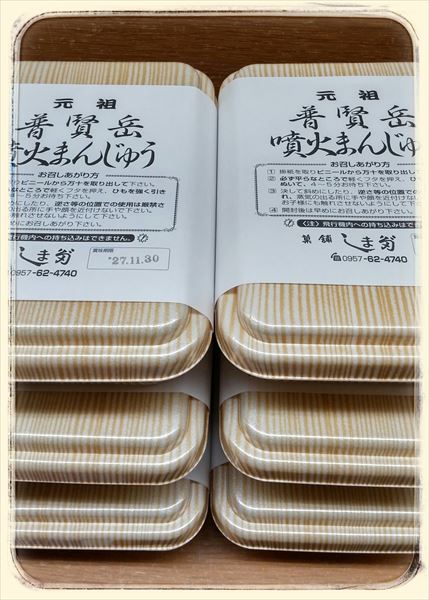 元祖
普賢岳
噴火まんじゅう
お召しあがり方
りビニールから万十を取り出して下さい。
なところで軽くフタを押え、ひもを強く引き
４～５分お待ち下さい。
めにしたり、逆さ等の位置での使用は厳禁さ
の出る所に手や顔を近付けないで下さい。
に触れさせないようにして下さい。
めにお召しあがり下さい。
飛行機内への持ち込みはできません。
賞味期限
27.11.30
しま翁
0957-62-4740
元祖
普賢岳
噴火まんじゅう
お召しあがり方
① 掛紙を取りビニールから万十を取り出
② 必ず平らなところで軽くフタを押え、ひ
ぬいて、４～５分お待ち下さい。
③ 決して斜めにしたり、逆さ等の位置で
れ、蒸気の出る所に手や顔を近付け
お子様にも触れさせないようにして
④ 開封後は早めにお召しあがり下さい。
〈注〉飛行機内への持ち込みはで
菓舗
しま翁
☎0957-62-4740